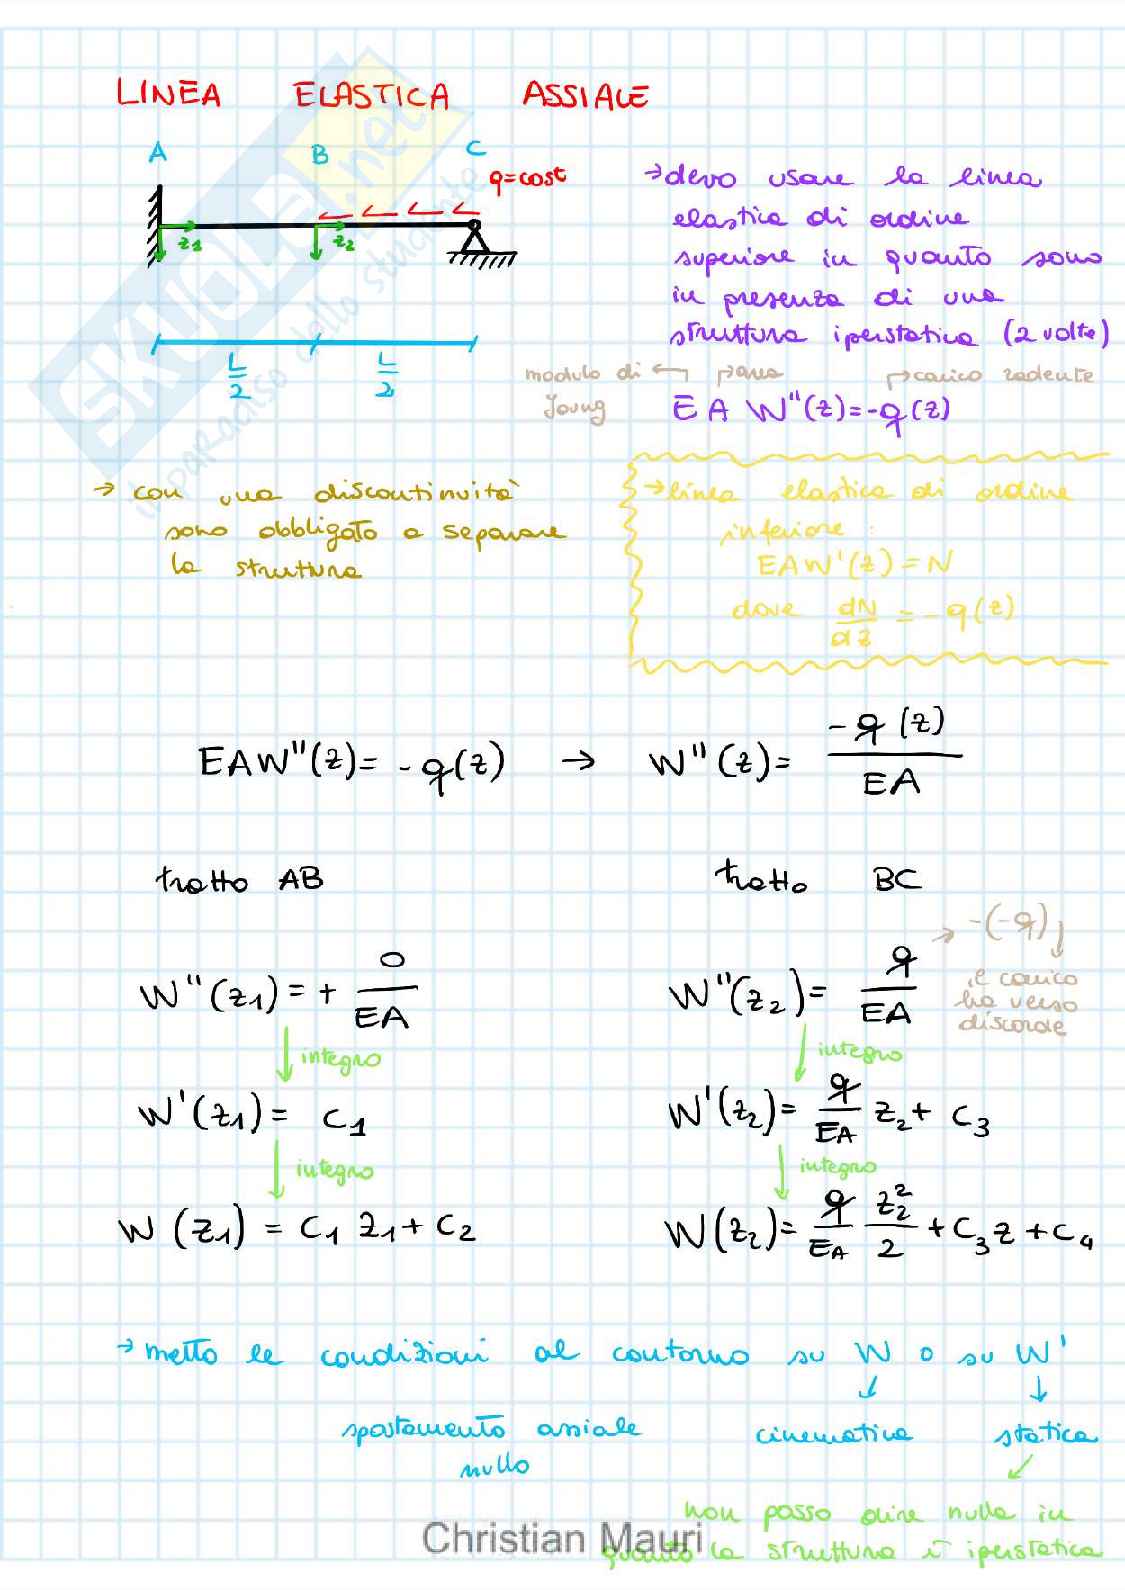 LINEA ELASTICA ASSIALE
A B C
q=cost
z1 z2
L/2 L/2
→devo usare la linea
elastica di ordine
superiore in quanto sono
in presenza di una
struttura iperstatica (2 volte)
modulo di Young
area
carico radente
E A W''(z)=-q(z)
→ con una discontinuità
sono obbligato a separare
la struttura
→linea elastica di ordine
inferiore:
EAW'(z)=N
dove dN/dz = -q(z)
EAW''(z)= -q(z) → W''(z)= -q(z)/EA
tratto AB
W''(z1)=+ 0/EA
integro
W'(z1)= C1
integro
W(z1) = C1 z1+ C2
tratto BC
W''(z2)= q/EA
→ -(-q)
il carico
ha verso
discorde
integro
W'(z2)= q/EA z2+ C3
integro
W(z2)= q/EA z2²/2 +C3z +C4
→ metto le condizioni al contorno su W o su W'
spostamento assiale
nullo
cinematica
statica
non posso dire nulla in
quanto la struttura è iperstatica
Christian Mauri
SKUOLA.net
il paradiso dello studente